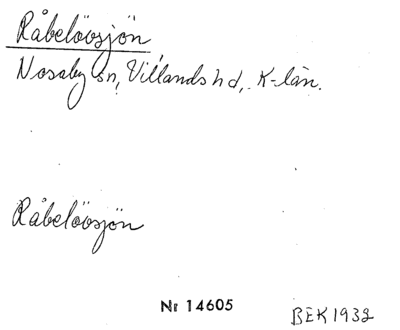 Råbelövsjön,
Nosaby sn, Villands hd, K-län.
Råbelövsjön
Nr 14605
BEK 1932